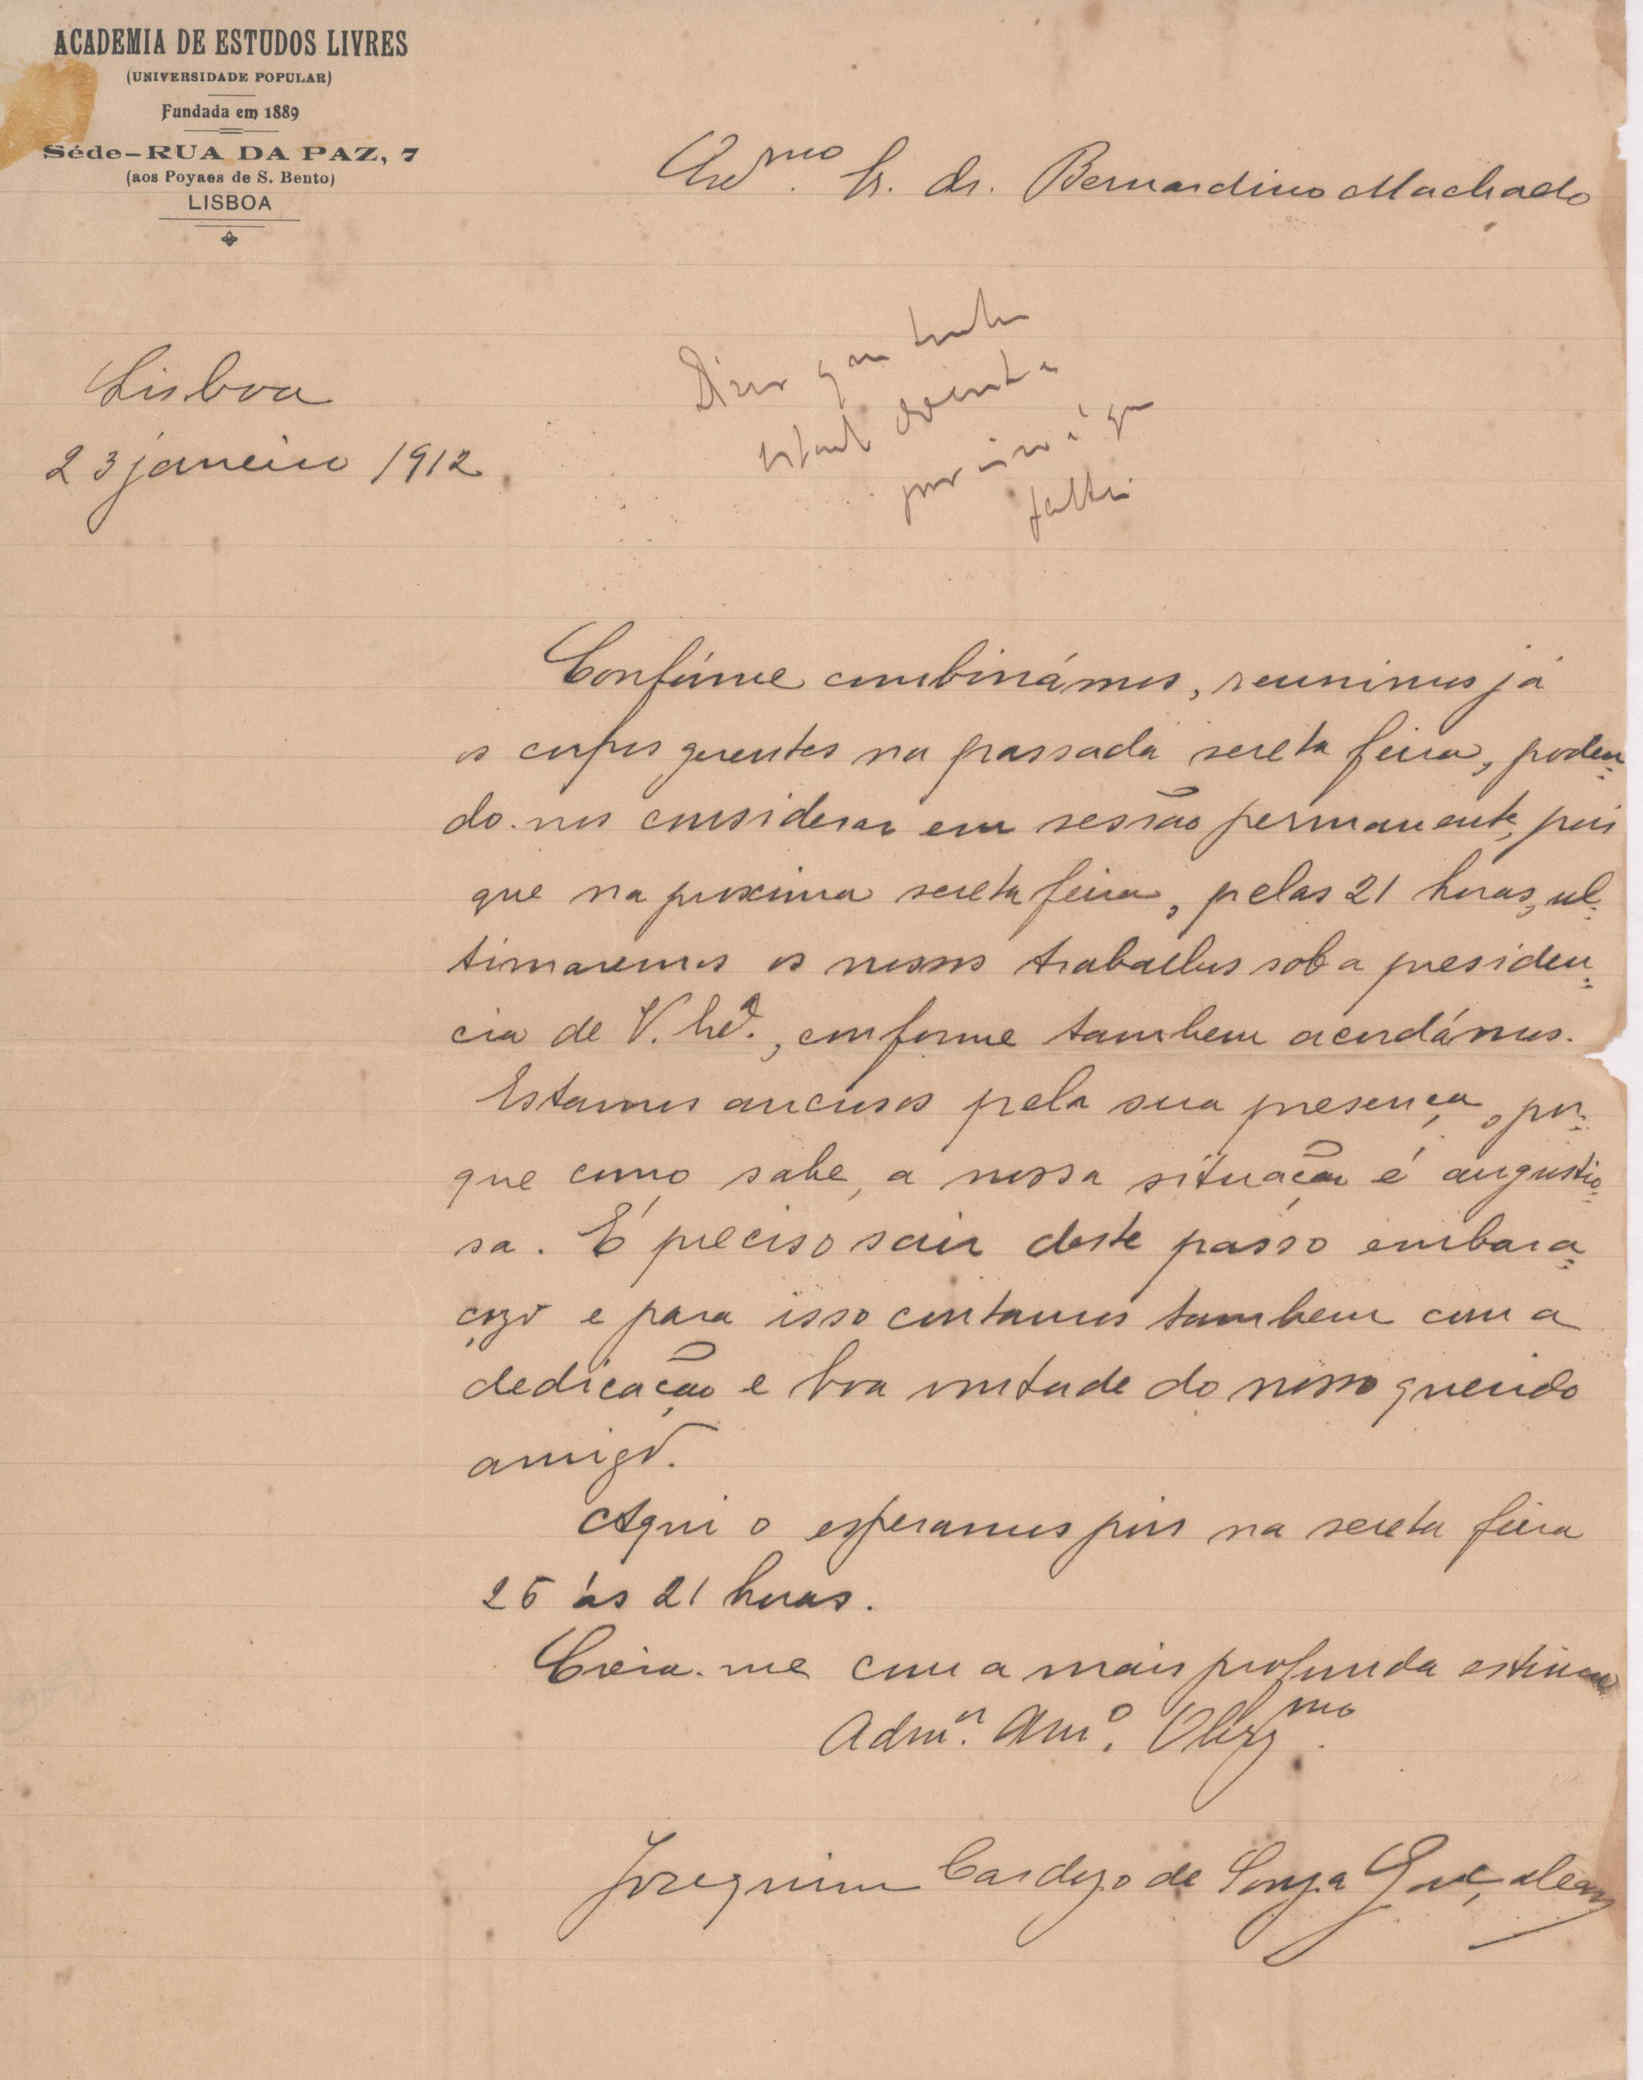 ACADEMIA DE ESTUDOS LIVRES
(UNIVERSIDADE POPULAR)
Fundada em 1889
Séde-RUA DA PAZ, 7
(aos Poyaes de S. Bento)
LISBOA
Sr. dr. Bernardino Machado
Lisboa
23 janeiro 1912
Dizer que tenho
estado doente e
por isso é que
faltei
Confórme combinámos, reunimos já
os corpos gerentes na passada sexta feira, poden-
do-nos considerar em sessão permanente, pois
que na proxima sexta feira, pelas 21 horas, ul-
timaremos os nossos trabalhos sob a presiden-
cia de V. , conforme tambem acordámos.
Estamos anciosos pela sua presença, por-
que como sabe, a nossa situação é angustio-
sa. É preciso sair deste passo embara-
çozo e para isso contamos tambem com a
dedicação e boa vontade do nosso querido
amigo.
Aqui o esperamos pois na sexta feira
26 ás 21 horas.
Creia-me com a mais profunda estima
Adm.or Am.o Obrg.mo
Jozequim Cardozo de Souza Gonçalves